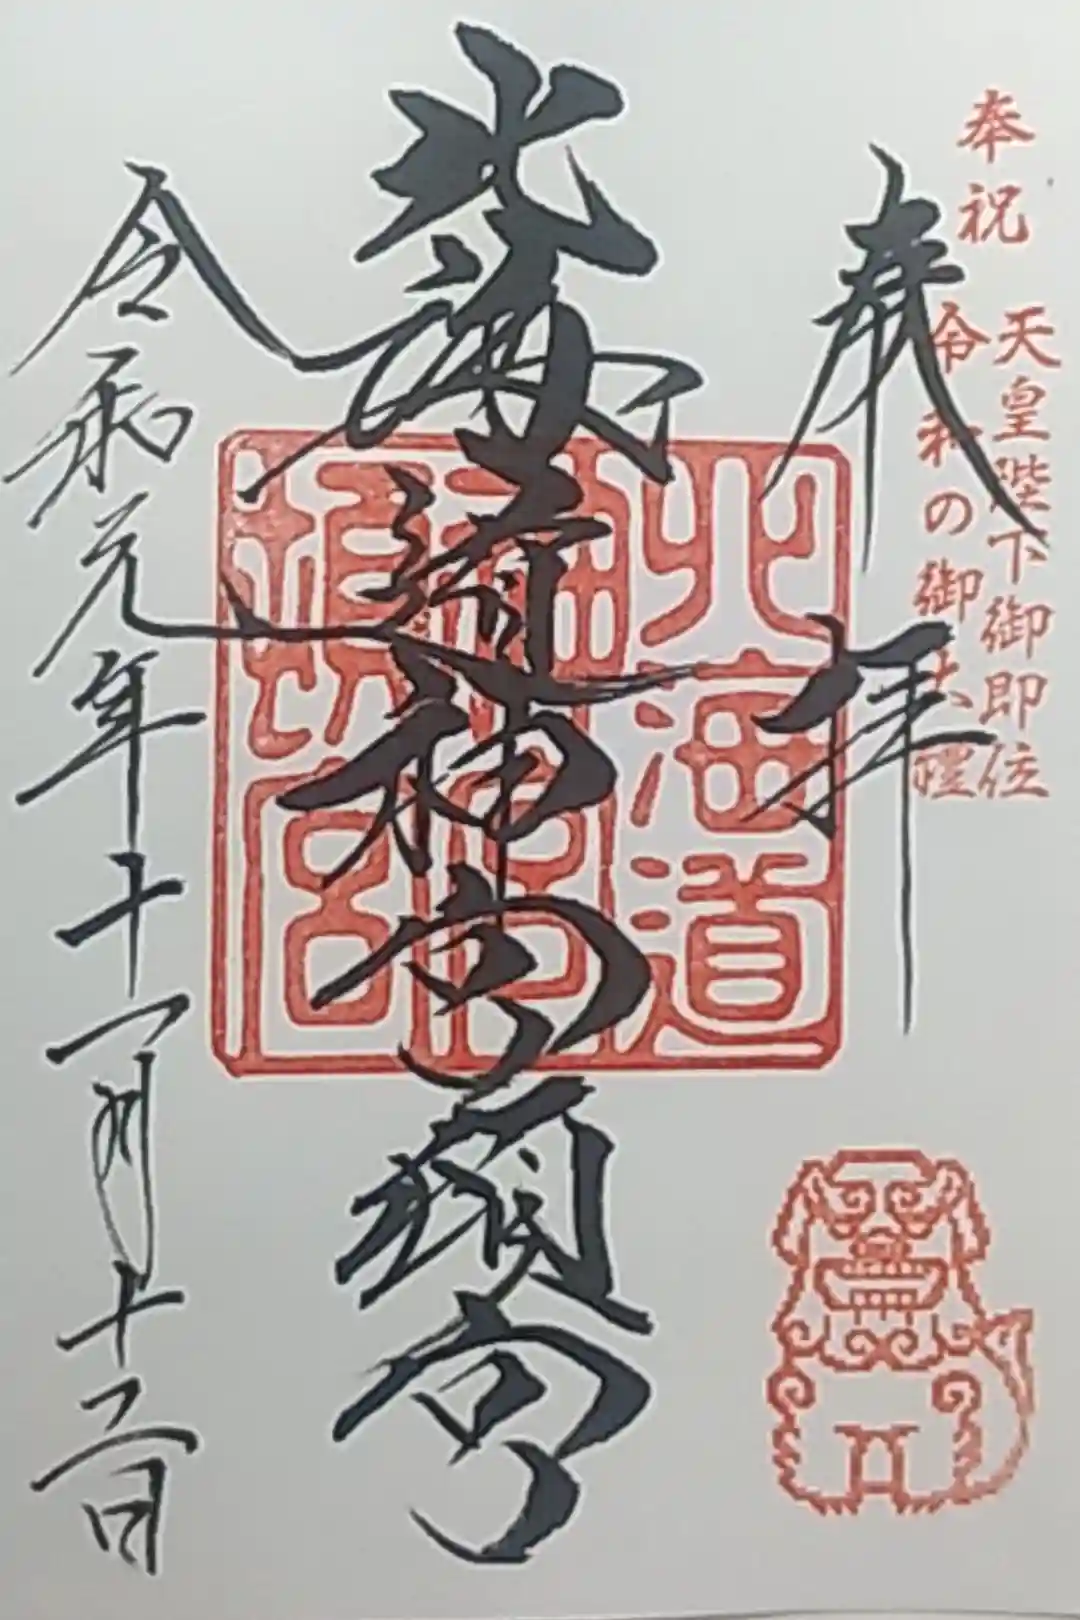 奉祝
天皇陛下御即位
令和の御大礼
奉拝
北海道神宮頓宮
北海道
神宮
頓宮
令和元年十一月十二日